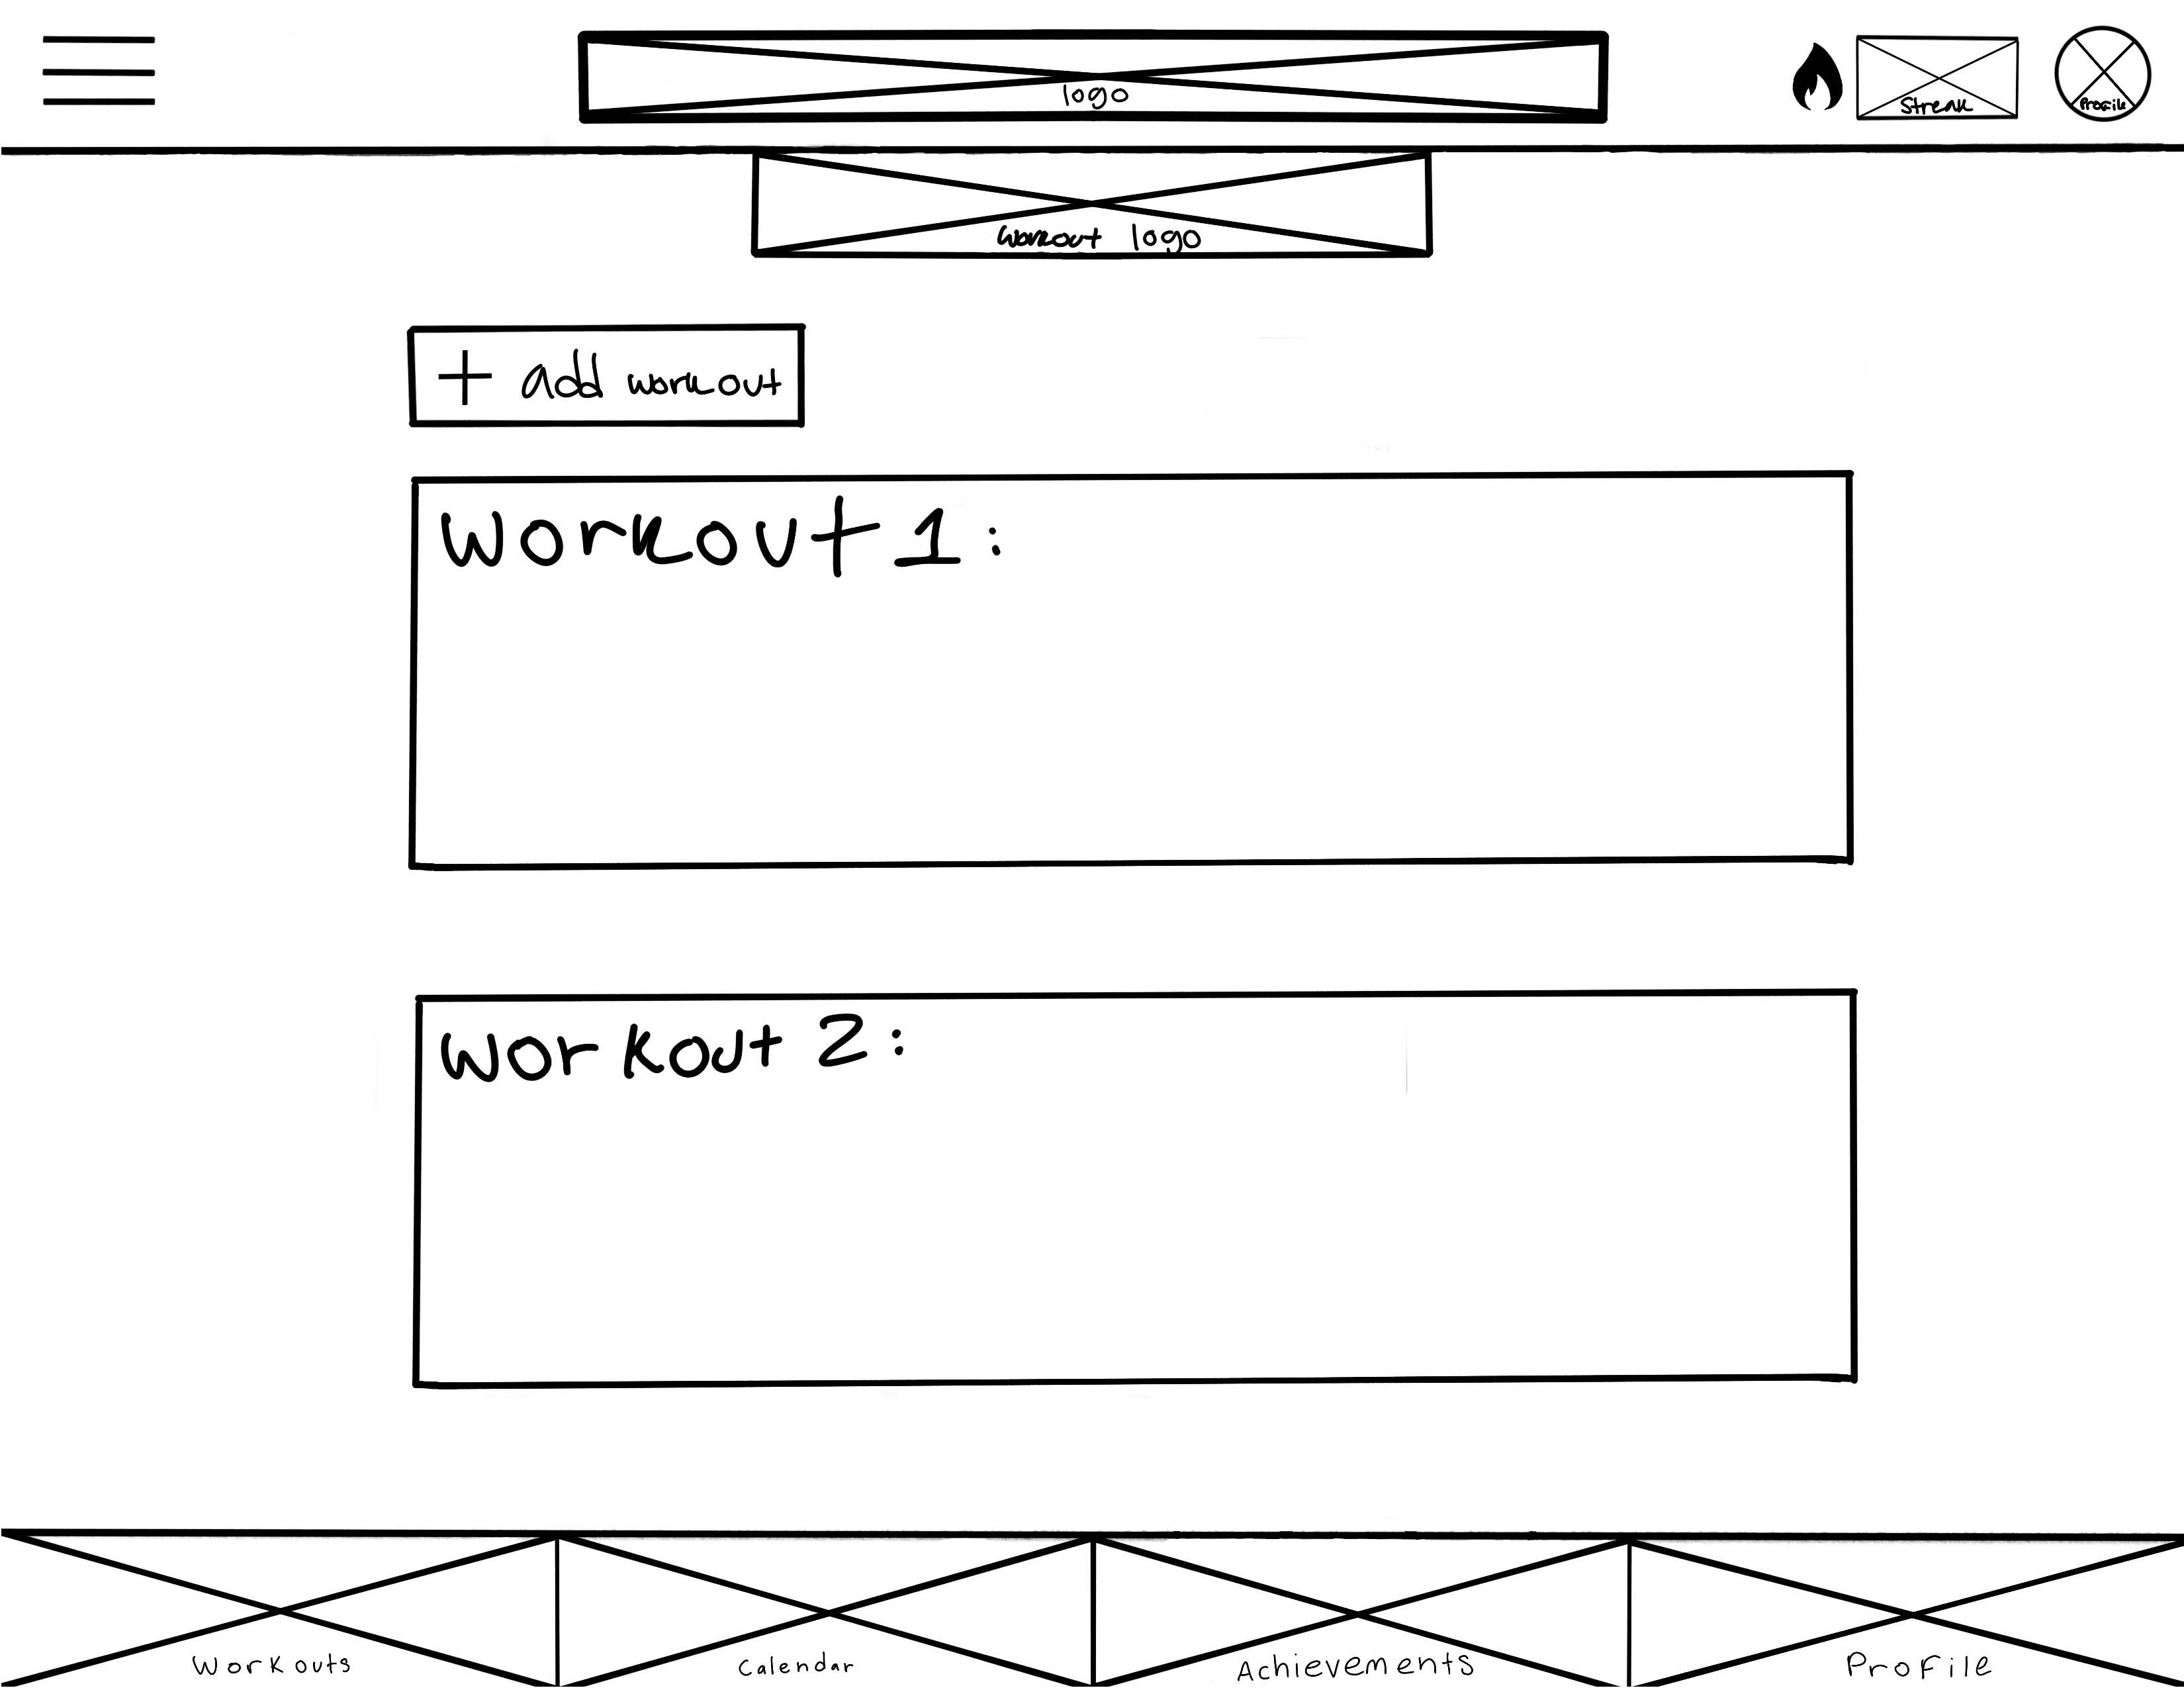 logo
Streak
Profile
workout logo
+ add workout
Workout 1:
Workout 2:
Workouts
Calendar
Achievements
Profile